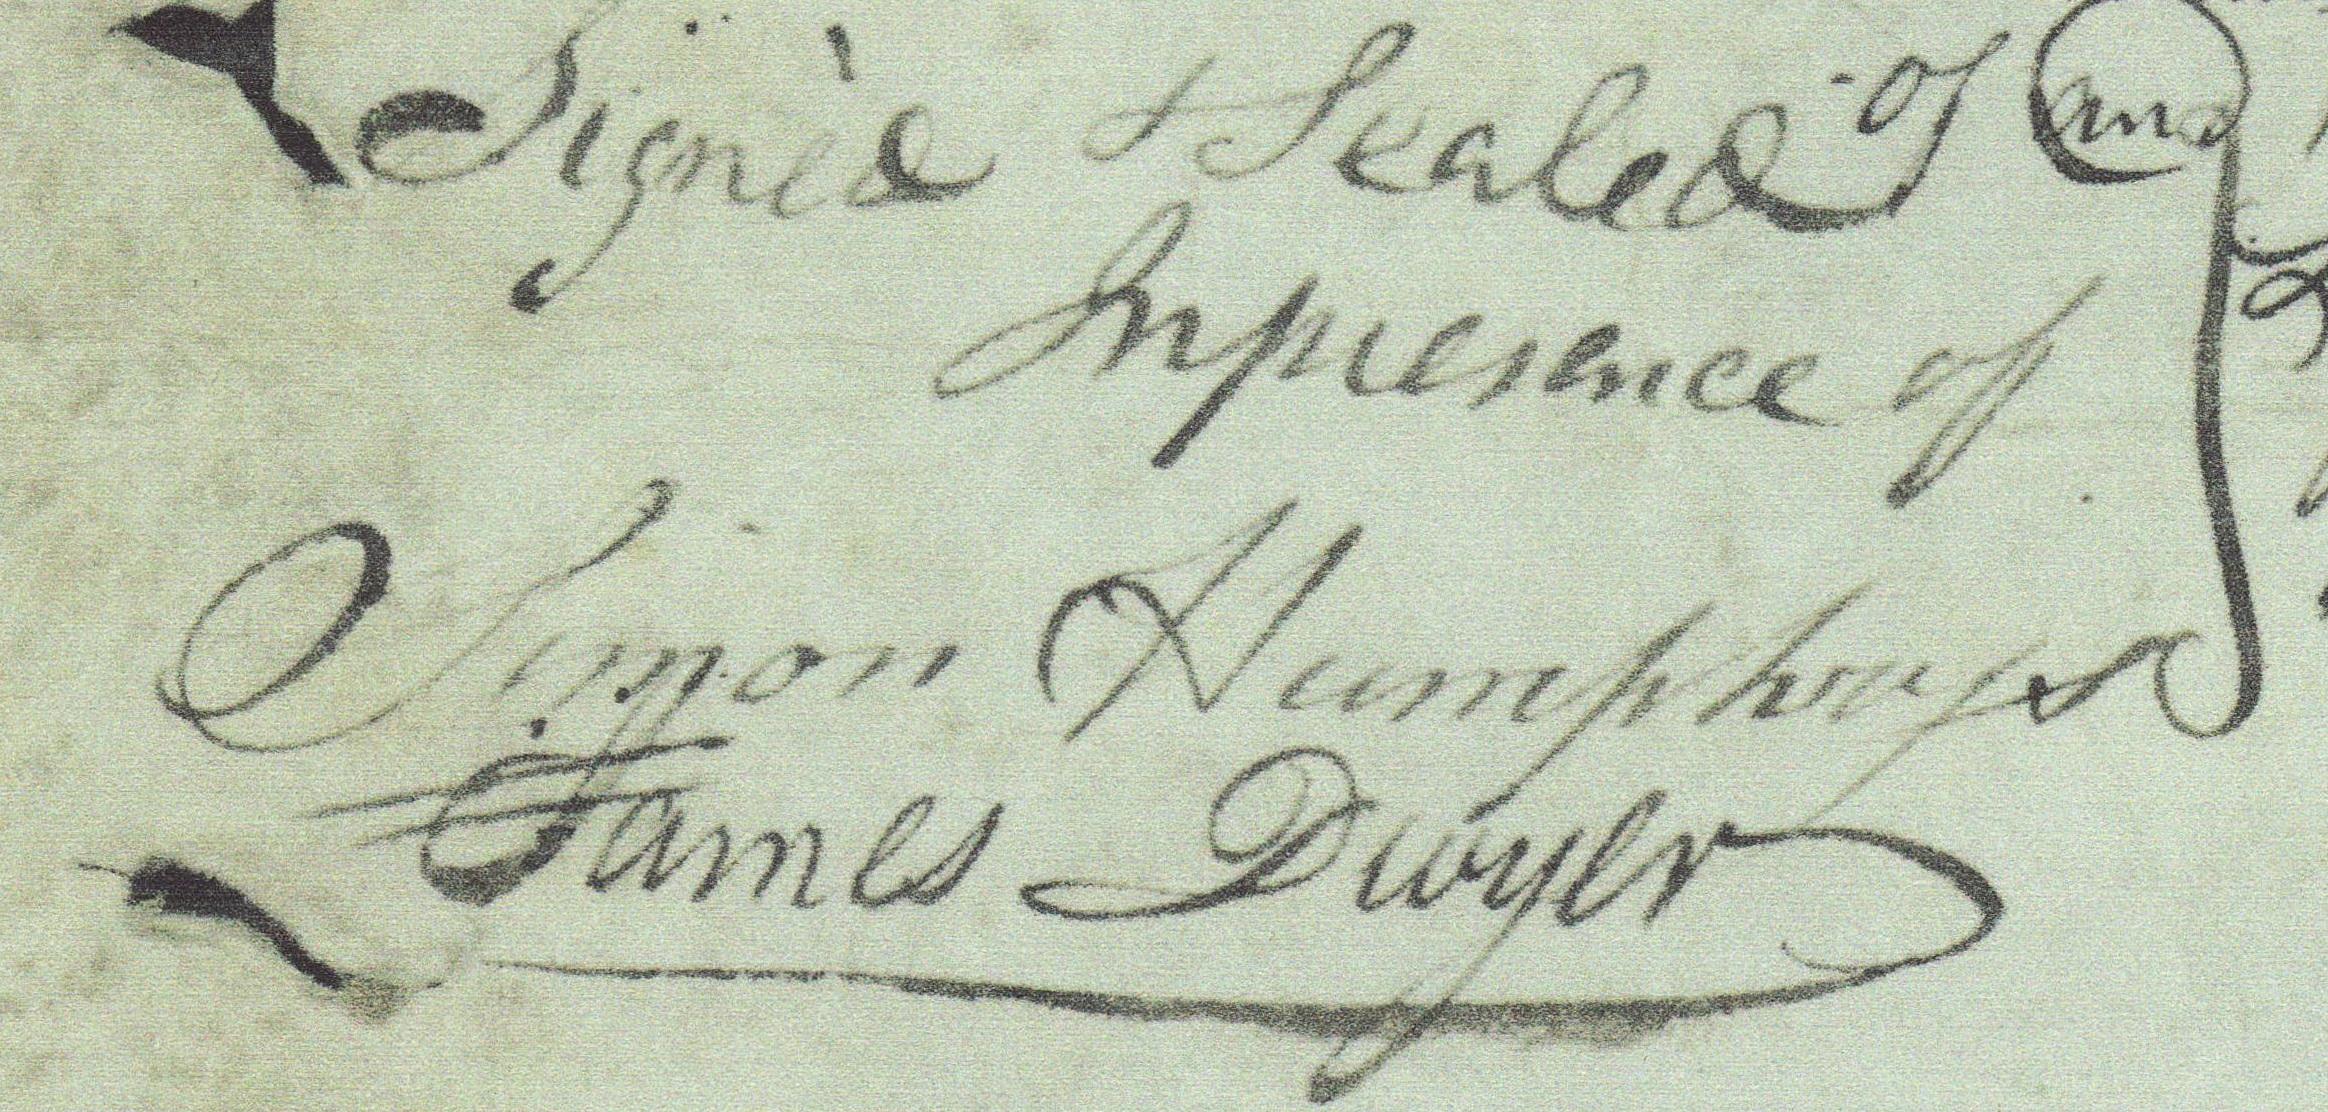 Signed & Sealed of
In presence of
Simon Humphreys
James Dwyer